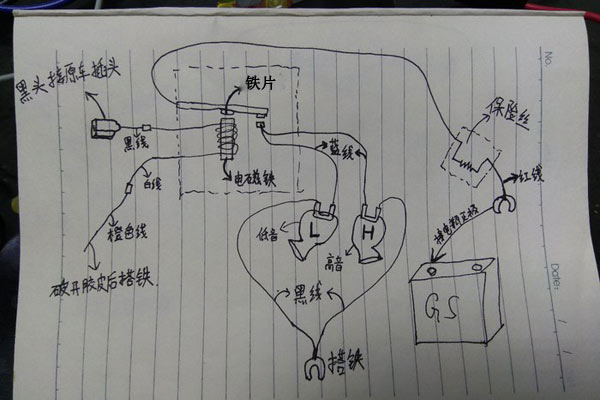 No.
铁片
黑头接原车插头
保险丝
黑线
蓝线
红线
白线
电磁铁
接电瓶正极
橙色线
低音
L
H
高音
破开胶皮后搭铁
黑线
GS
搭铁
Date: